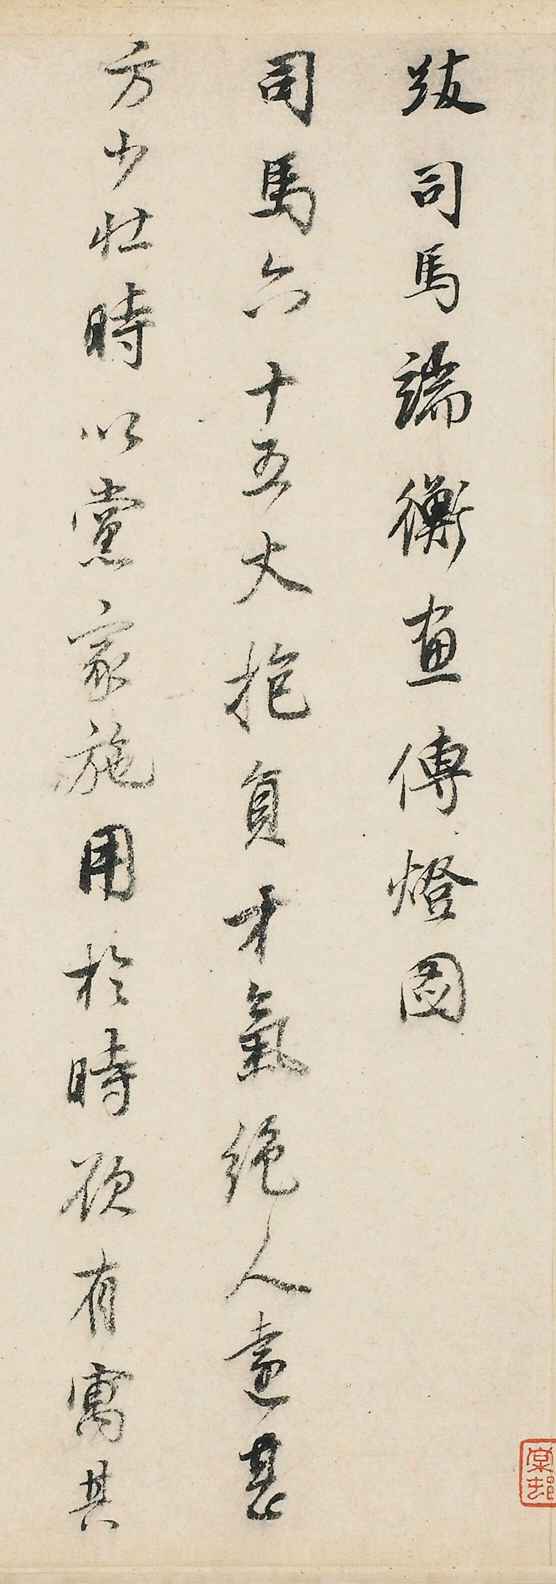 跋司馬端衡畫傳燈圖
司馬六十五丈抱負才氣絶人遠甚
方少壯時以黨家施用於時欲有寓其